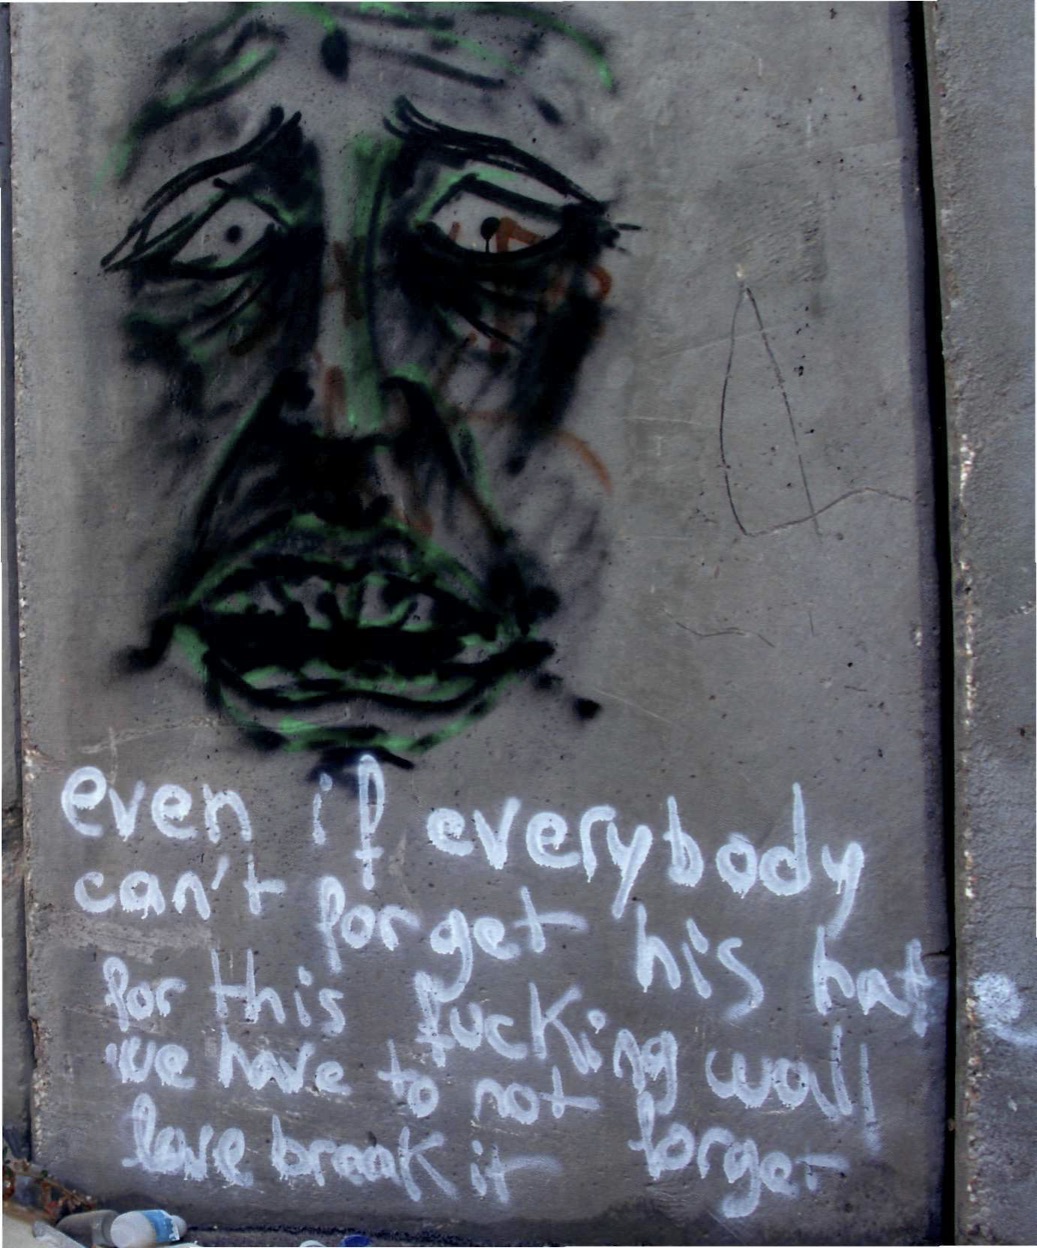 even if everybody
can't forget his hat
for this fucking wall
we have to not forget
love break it